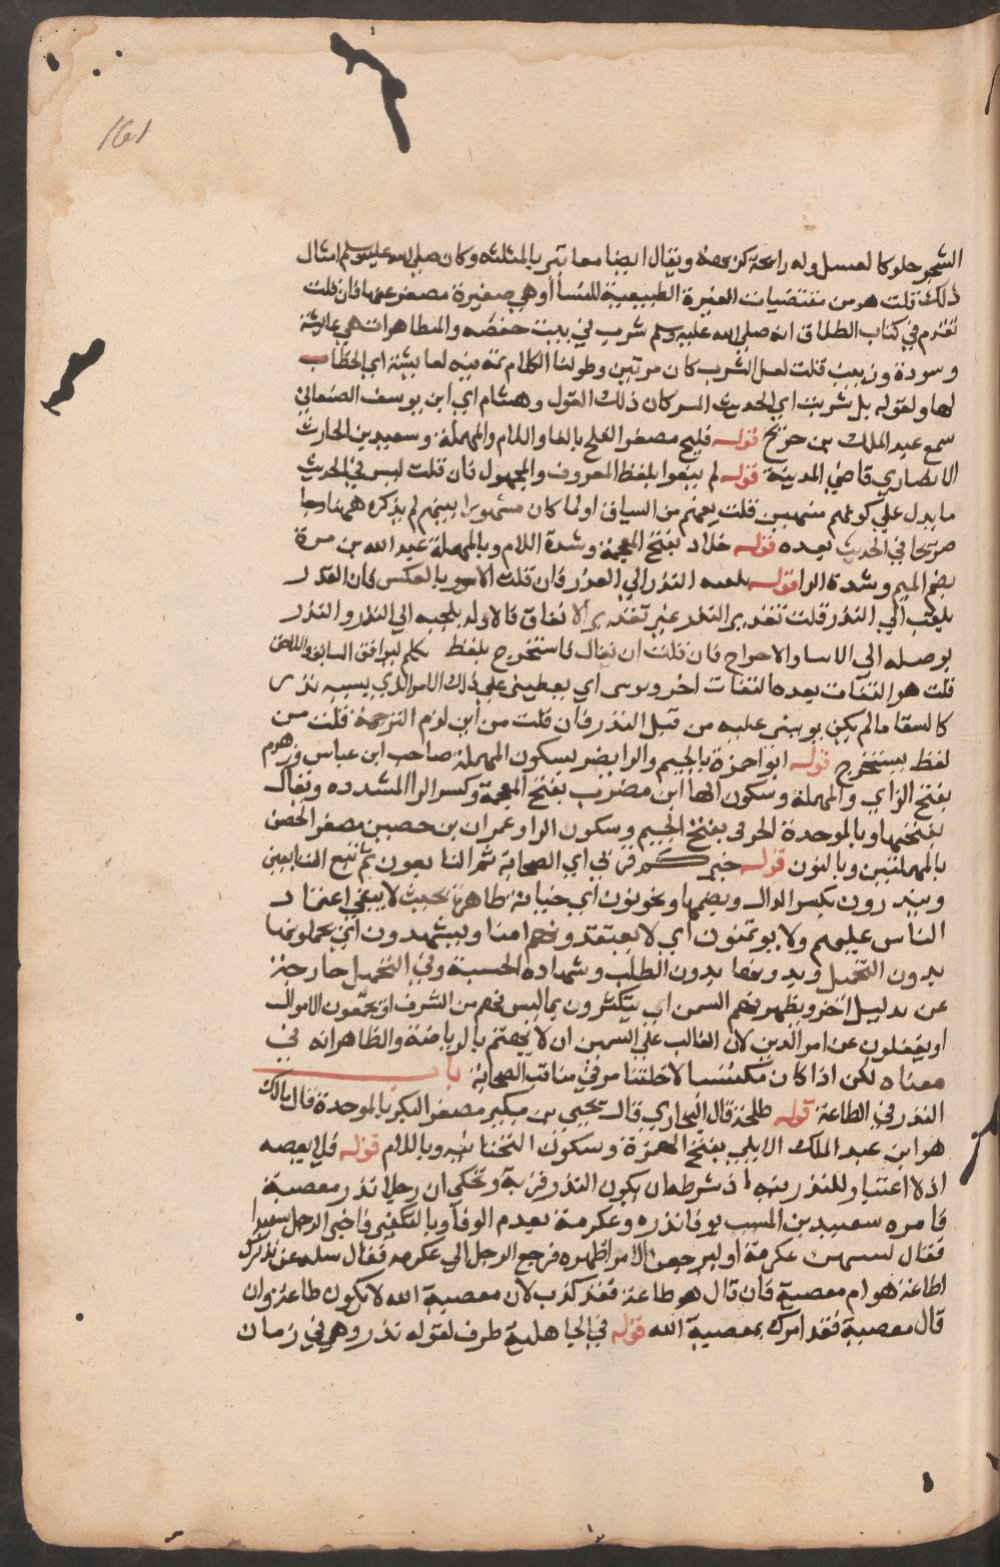 161
الشجر حلو كالعسل وله رائحة كريهة ويقال ايضا مغاثير بالمثلثة وكان صلى الله عليه وسلم امتثال
ذلك قلت هو من مقتضيات الغيرة الطبيعية للنساء او هي صغيرة معفو عنها فان قلت
تقدم في كتاب الطلاق انه صلى الله عليه وسلم شرب في بيت حفصة والمتظاهرات هي عائشة
وسودة وزينب قلت لعل الشرب كان مرتين وطولنا الكلام ثمة فيه لعائشة اي الخطاب
لها ولقوله بل شربت اي الحديث المسر كان ذلك القول وهشام اي ابن يوسف الصنعاني
سمع عبد الملك بن جريج قوله فليح مصغر الفلح بالفاء واللام والمهملة وسعيد بن الحارث
الانصاري قاضي المدينة قوله لم ينهوا بلفظ المعروف والمجهول فان قلت ليس في الحديث
ما يدل على كونهم منهيين قلت يفهم من السياق او لما كان مشهورا بينهم لم يذكره ههنا وجا
صريحا في الحديث بعده قوله خلاد بفتح المعجمة وشدة اللام وبالمهملة عبد الله بن مرة
بضم الميم وشدة الرا قوله يلقيه النذر الي القدر فان قلت الامر بالعكس فان القدر
يلقيه الي النذر قلت تقدير النذر غير تقدير الانفاق فالاول يلجيه الي النذر والنذر
يوصله الي الايتاء والاخراج فان قلت ان يقال فاستخرج بلفظ المتكلم ليوافق السابق واللاحق
قلت هو التفات بعده التفات اخر ويوتى اي يعطيني على ذلك الامر الذي بسببه نذر
كالشفا ما لم يكن يوتيني عليه من قبل النذر فان قلت من اين لزم الترجمة قلت من
لفظ يستخرج قوله ابو جمرة بالجيم والرا نصر بسكون المهملة صاحب ابن عباس وزهدم
بفتح الزاي والمهملة وسكون الها ابن مضرب بفتح المعجمة وكسر الرا المشدده ويقال
بفتحها وبالموحدة الجرمي بفتح الجيم وسكون الرا وعمران بن حصين مصغر الحصن
بالمهملتين وبالنون قوله خيركم قرني اي الصحابة ثم التابعون ثم تبع التابعين
وينذرون بكسر الذال وبضمها ويخونون اي خيانة ظاهرة بحيث لا يبقى اعتماد
الناس عليهم ولا يوتمنون اي لا يعتقدونهم امنا ويشهدون اي يتحملونها
بدون التحميل ويؤدونها بدون الطلب وشهادة الحسبة وفي التحميل خارجة
عن بدليل اخر ويظهر فيهم السمن اي يتكثرون بما ليس فيهم من الشرف او يجمعون الاموال
او يغفلون عن امر الدين لان الغالب على السمين ان لا يهتم بالرياضة والظاهر انه في
معناه لكن اذا كان مكتسبا لا خلقيا مر في مناقب الصحابة باب
النذر في الطاعة قوله طلحة قال البخاري قال يحيى بن بكير مصغر البكر بالموحدة قال مالك
هو ابن عبد الملك الايلي بفتح الهمزة وسكون التحتانية وباللام قوله فلا يعصه
اذ لا اعتبار للنذر فيه اذ شرطه ان يكون النذر قربة وحكي ان رجلا نذر معصية
فامره سعيد بن المسيب بوفا نذره وعكرمة بعدم الوفا وبالتكفير فاخبر الرجل سعيدا
فقال لينتهين عكرمة او ليوجعن الامرا ظهره فرجع الرجل الي عكرمه فقال سله عن نذرك
اطاعة هو ام معصية فان قال هو طاعة فقد كذب لان معصية الله لا تكون طاعة وان
قال معصية فقد امرك بمعصية الله قوله في الجاهلية ظرف لقوله نذر وهي في زمان